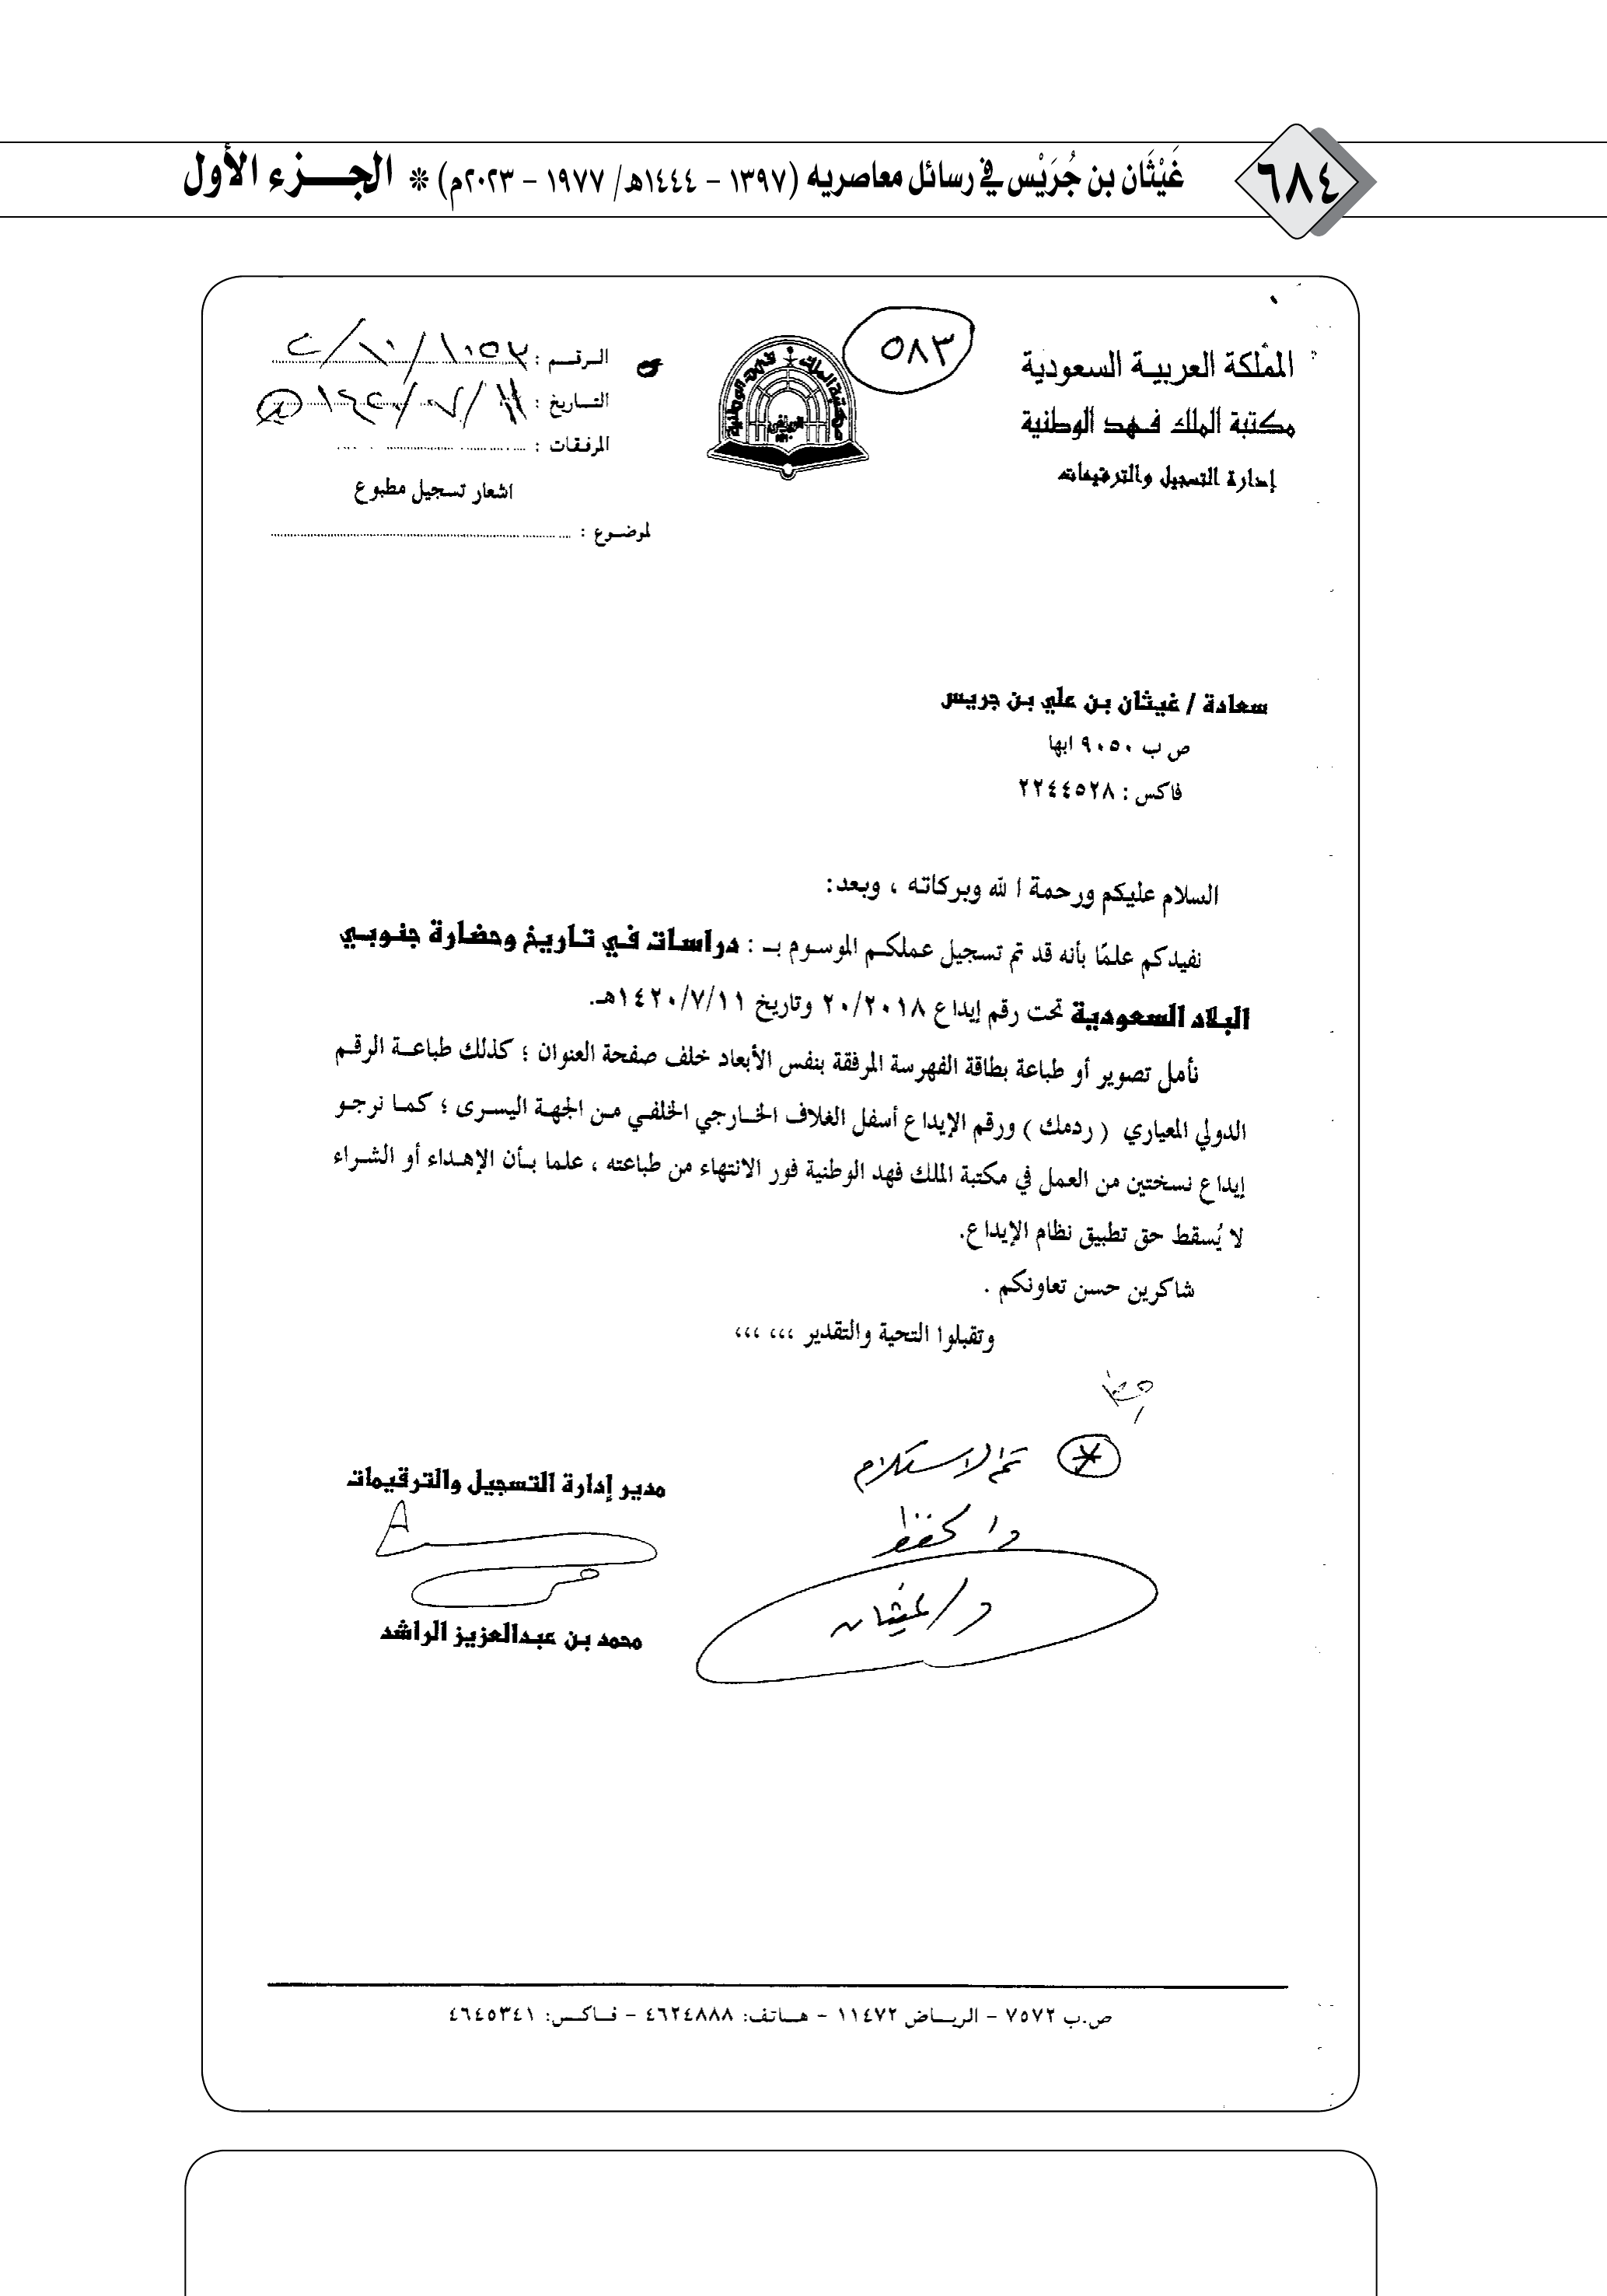 ٦٨٤
غَيْثَان بن جُرَيْس في رسائل معاصريه (١٣٩٧ - ١٤٤٤هـ/ ١٩٧٧ - ٢٠٢٣م) * الجـــزء الأول
٥٨٣
المملكة العربيـة السعودية
مكتبة الملك فـهد الوطنية
إدارة التسجيل والترقيمات
الـرقـم :
التـاريخ : ١١/٧/١٤٢٠هـ
المرفـقات :
اشعار تسجيل مطبوع
لموضـوع :
سعادة / غيثان بن علي بن جريس
ص ب ٩٠٥٠ ابها
فاكس : ٢٢٤٤٥٢٨
السلام عليكم ورحمة الله وبركاته ، وبعد:
نفيدكم علمًا بأنه قد تم تسجيل عملكـم الموسـوم بـ : دراسات فـي تـاريخ وحضارة جنـوبـي
البلاد السعودية تحت رقم إيداع ٢٠/٢٠١٨ وتاريخ ١٤٢٠/٧/١١هـ.
نأمل تصوير أو طباعة بطاقة الفهرسة المرفقة بنفس الأبعاد خلف صفحة العنوان ؛ كذلك طباعـة الرقـم
الدولي المعياري ( ردمك ) ورقم الإيداع أسفل الغلاف الخـارجي الخلفـي مـن الجهة اليسـرى ؛ كمـا نرجـو
إيداع نسختين من العمل في مكتبة الملك فهد الوطنية فور الانتهاء من طباعته ، علما بـأن الإهـداء أو الشـراء
لا يُسقط حق تطبيق نظام الإيداع.
شاكرين حسن تعاونكم .
وتقبلوا التحية والتقدير ،،، ،،،
* تم الاستلام
والحفظ
د/ غيثان
مدير إدارة التسجيل والترقيمات
محمد بن عبدالعزيز الراشد
ص.ب ٧٥٧٢ - الريـاض ١١٤٧٢ - هـاتف: ٤٦٢٤٨٨٨ - فـاكـس: ٤٦٤٥٣٤١